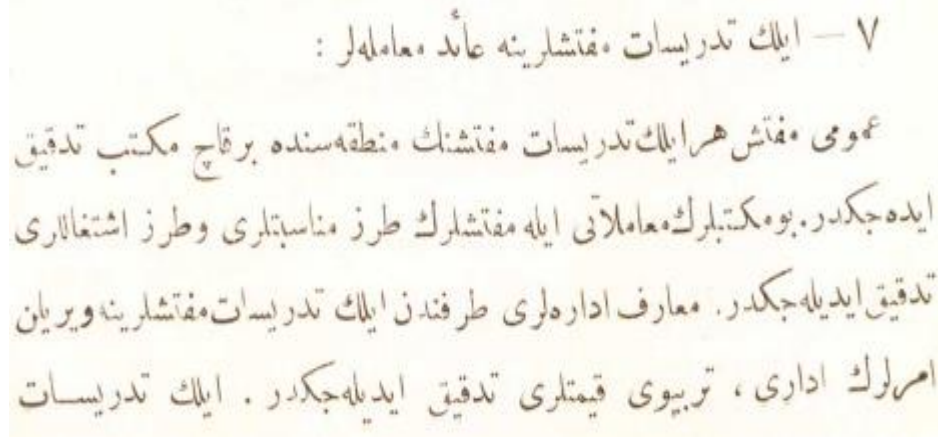 ٧ — ايلك تدريسات مفتشلرينه عائد معامله‌لر :
عمومى مفتش هر ايلك تدريسات مفتشنك منطقه‌سنده برقاچ مكتب تدقيق
ايده‌جكدر. بو مكتبلرك معاملاتى ايله مفتشلرك طرز مناسبتلرى وطرز اشتغاللرى
تدقيق ايديله‌جكدر. معارف اداره‌لرى طرفندن ايلك تدريسات مفتشلرينه ويريلن
امرلرك ادارى ، تربيوى قيمتلرى تدقيق ايديله‌جكدر . ايلك تدريسات